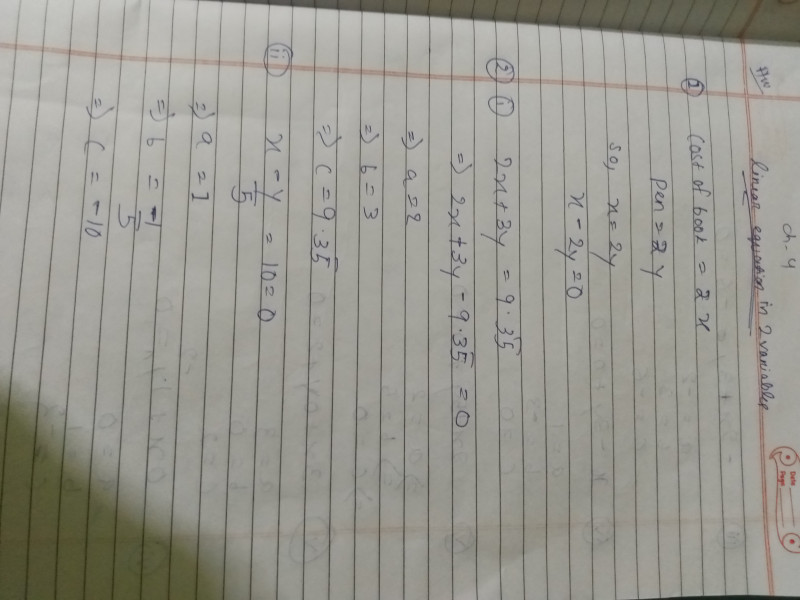 Ch-4
H/W
linear equation in 2 variables
Date
Page
① Cost of book = 2 x
Pen = 2 y
So, x = 2y
x - 2y = 0
② ⓘ 2x + 3y = 9.35
⇒ 2x + 3y - 9.35 = 0
⇒ a = 2
⇒ b = 3
⇒ c = 9.35
ⅱ x - y/5 = 10 = 0
⇒ a = 1
⇒ b = -1/5
⇒ c = -10